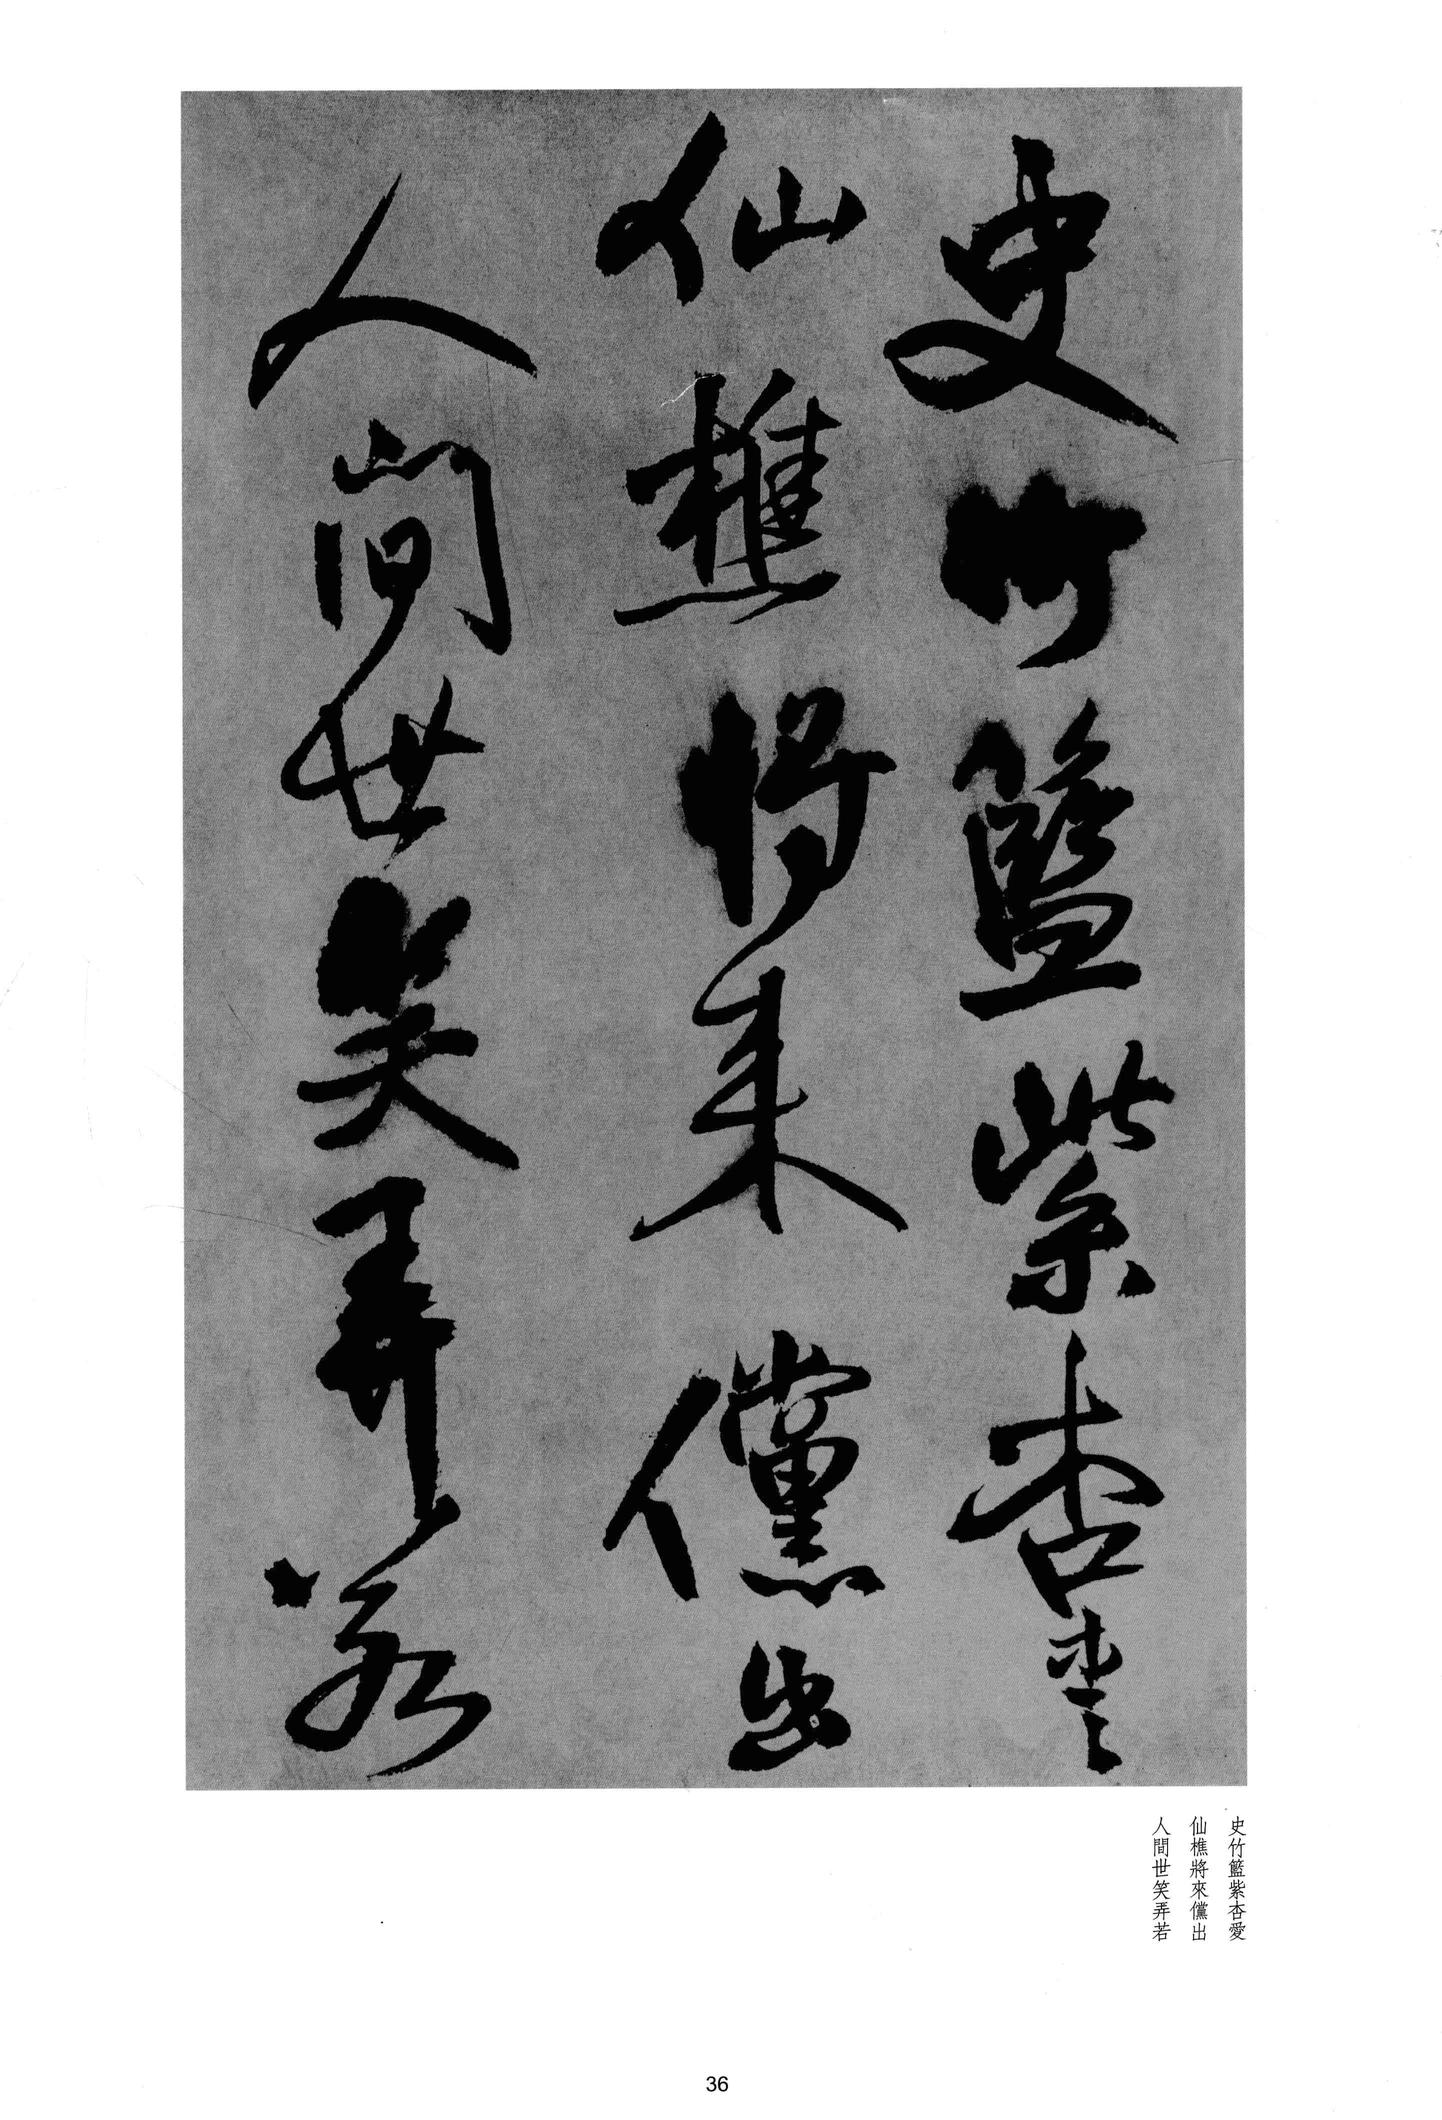 史竹籃紫杏
仙樵將來儻出
人間世笑弄若
史竹籃紫杏愛
仙樵將來儻出
人間世笑弄若
36